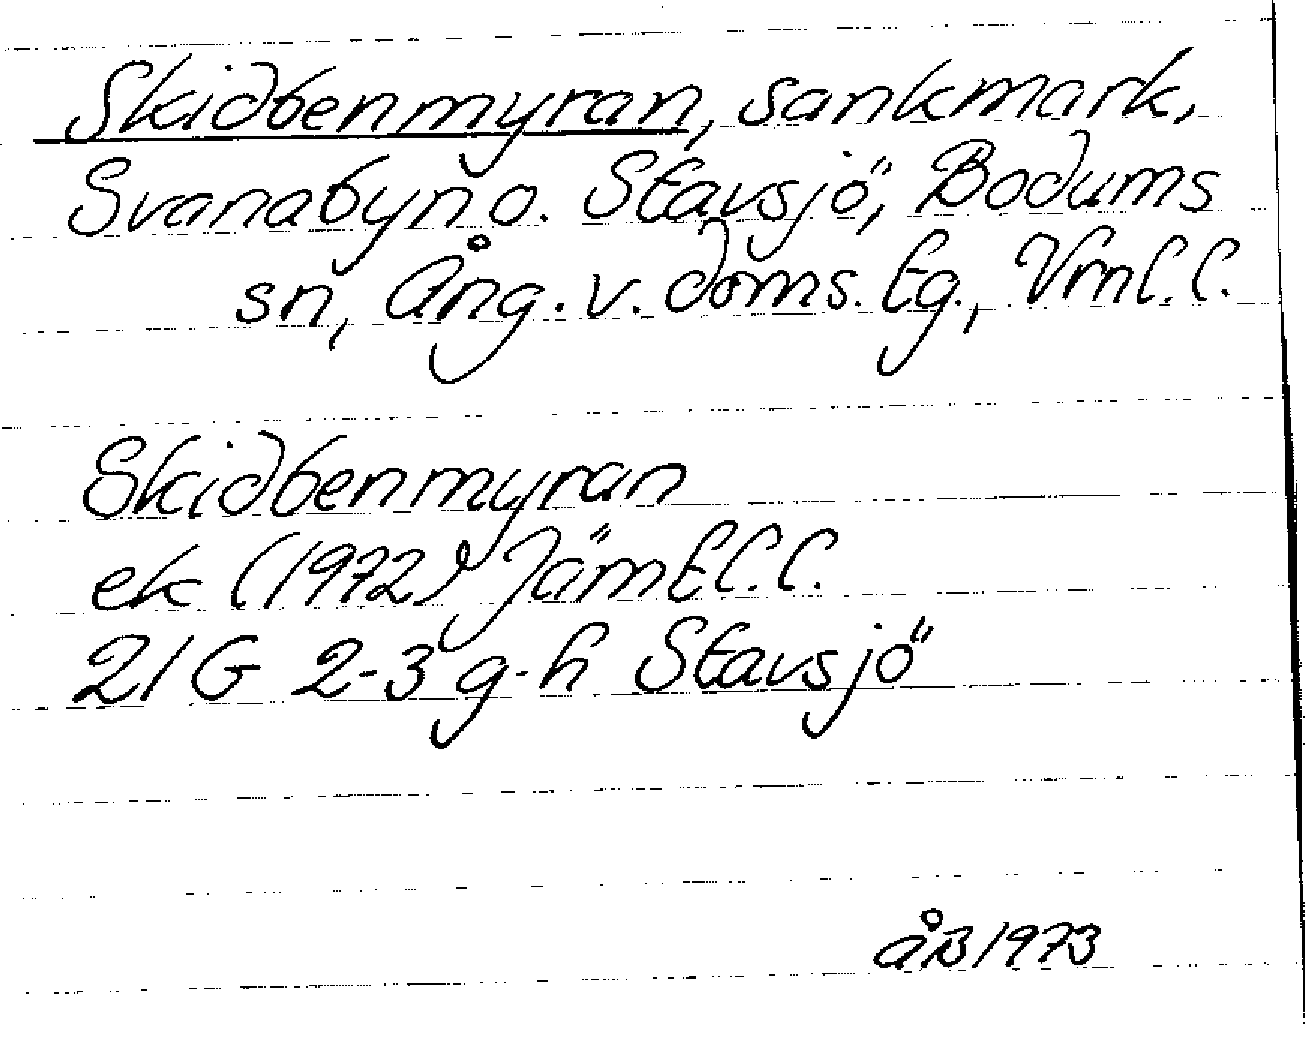 Skidbenmyran, sankmark,
Svanabyn o. Stavsjö, Bodums
sn, Ång. v. doms. tg., Vrnl. l.
Skidbenmyran
ek (1972) Jämtl. l.
21G 2-3 g-h Stavsjö
åB 1973